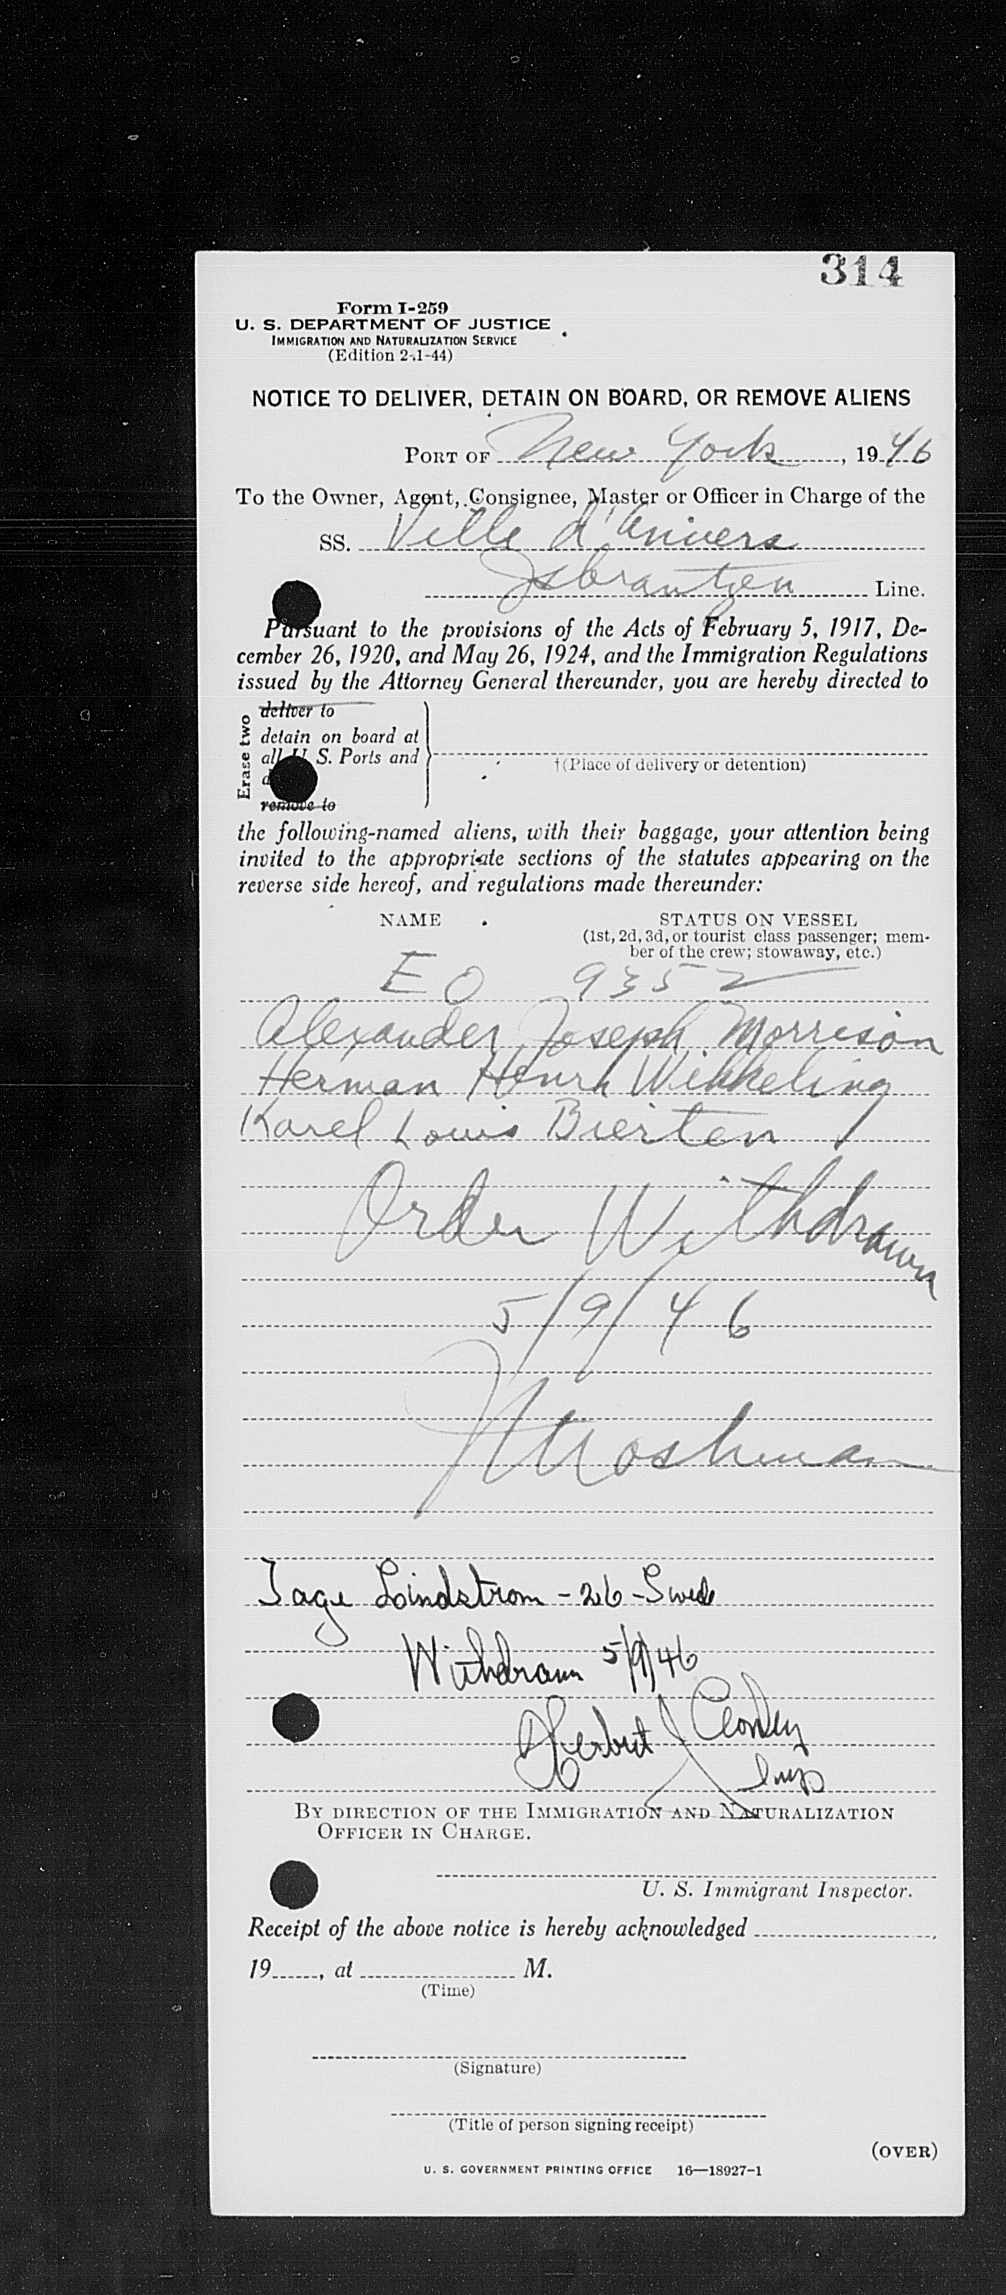 314
Form I-259
U. S. DEPARTMENT OF JUSTICE
IMMIGRATION AND NATURALIZATION SERVICE
(Edition 2-1-44)
NOTICE TO DELIVER, DETAIN ON BOARD, OR REMOVE ALIENS
PORT OF New York, 1946
To the Owner, Agent, Consignee, Master or Officer in Charge of the
SS. Ville d'Anvers
Isbrantzen Line.
Pursuant to the provisions of the Acts of February 5, 1917, De-
cember 26, 1920, and May 26, 1924, and the Immigration Regulations
issued by the Attorney General thereunder, you are hereby directed to
Erase two
deliver to
detain on board at
all U. S. Ports and
remove to
†(Place of delivery or detention)
the following-named aliens, with their baggage, your attention being
invited to the appropriate sections of the statutes appearing on the
reverse side hereof, and regulations made thereunder:
NAME STATUS ON VESSEL
(1st, 2d, 3d, or tourist class passenger; mem-
ber of the crew; stowaway, etc.)
EO 9352
Alexander Joseph Morrison
Herman Henrh Wikkeling
Karel Louis Bierten
Order Withdrawn
5/9/46
Moshman
Tage Lindstrom - 26 - Swede
Withdrawn 5/9/46
Herbert J
Insp
BY DIRECTION OF THE IMMIGRATION AND NATURALIZATION
OFFICER IN CHARGE.
U. S. Immigrant Inspector.
Receipt of the above notice is hereby acknowledged
19, at M.
(Time)
(Signature)
(Title of person signing receipt)
(OVER)
U. S. GOVERNMENT PRINTING OFFICE 16—18927-1